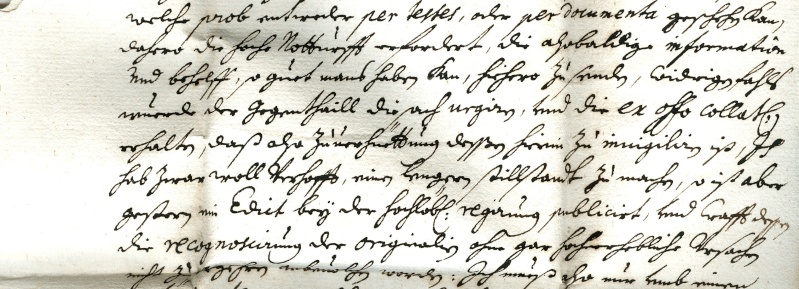 welche prob entweder per testes, oder per documenta geschehen kan,
dahero die hohe Notturfft erfordert, die alsobaldige information
und behelff, so guet mans haben kan, hiehero zu senden, widrigen fahls
wurde der Gegenthaill die sach urgirn, und die ex offo collat:
erhalten, daß also zuuerhüettung dessen hierin zu inuigiliern ist, Ich
hab zwar woll verhofft, einen lengern stillstandt zu machen, so ist aber
gestern ein Edict bey der hochlobl: regierung publicirt, und crafft dessen
die recognoscirung der originalien ohne gar hocherhebliche Ursachen
nicht zu worden: Ich mueß also nur umb einen